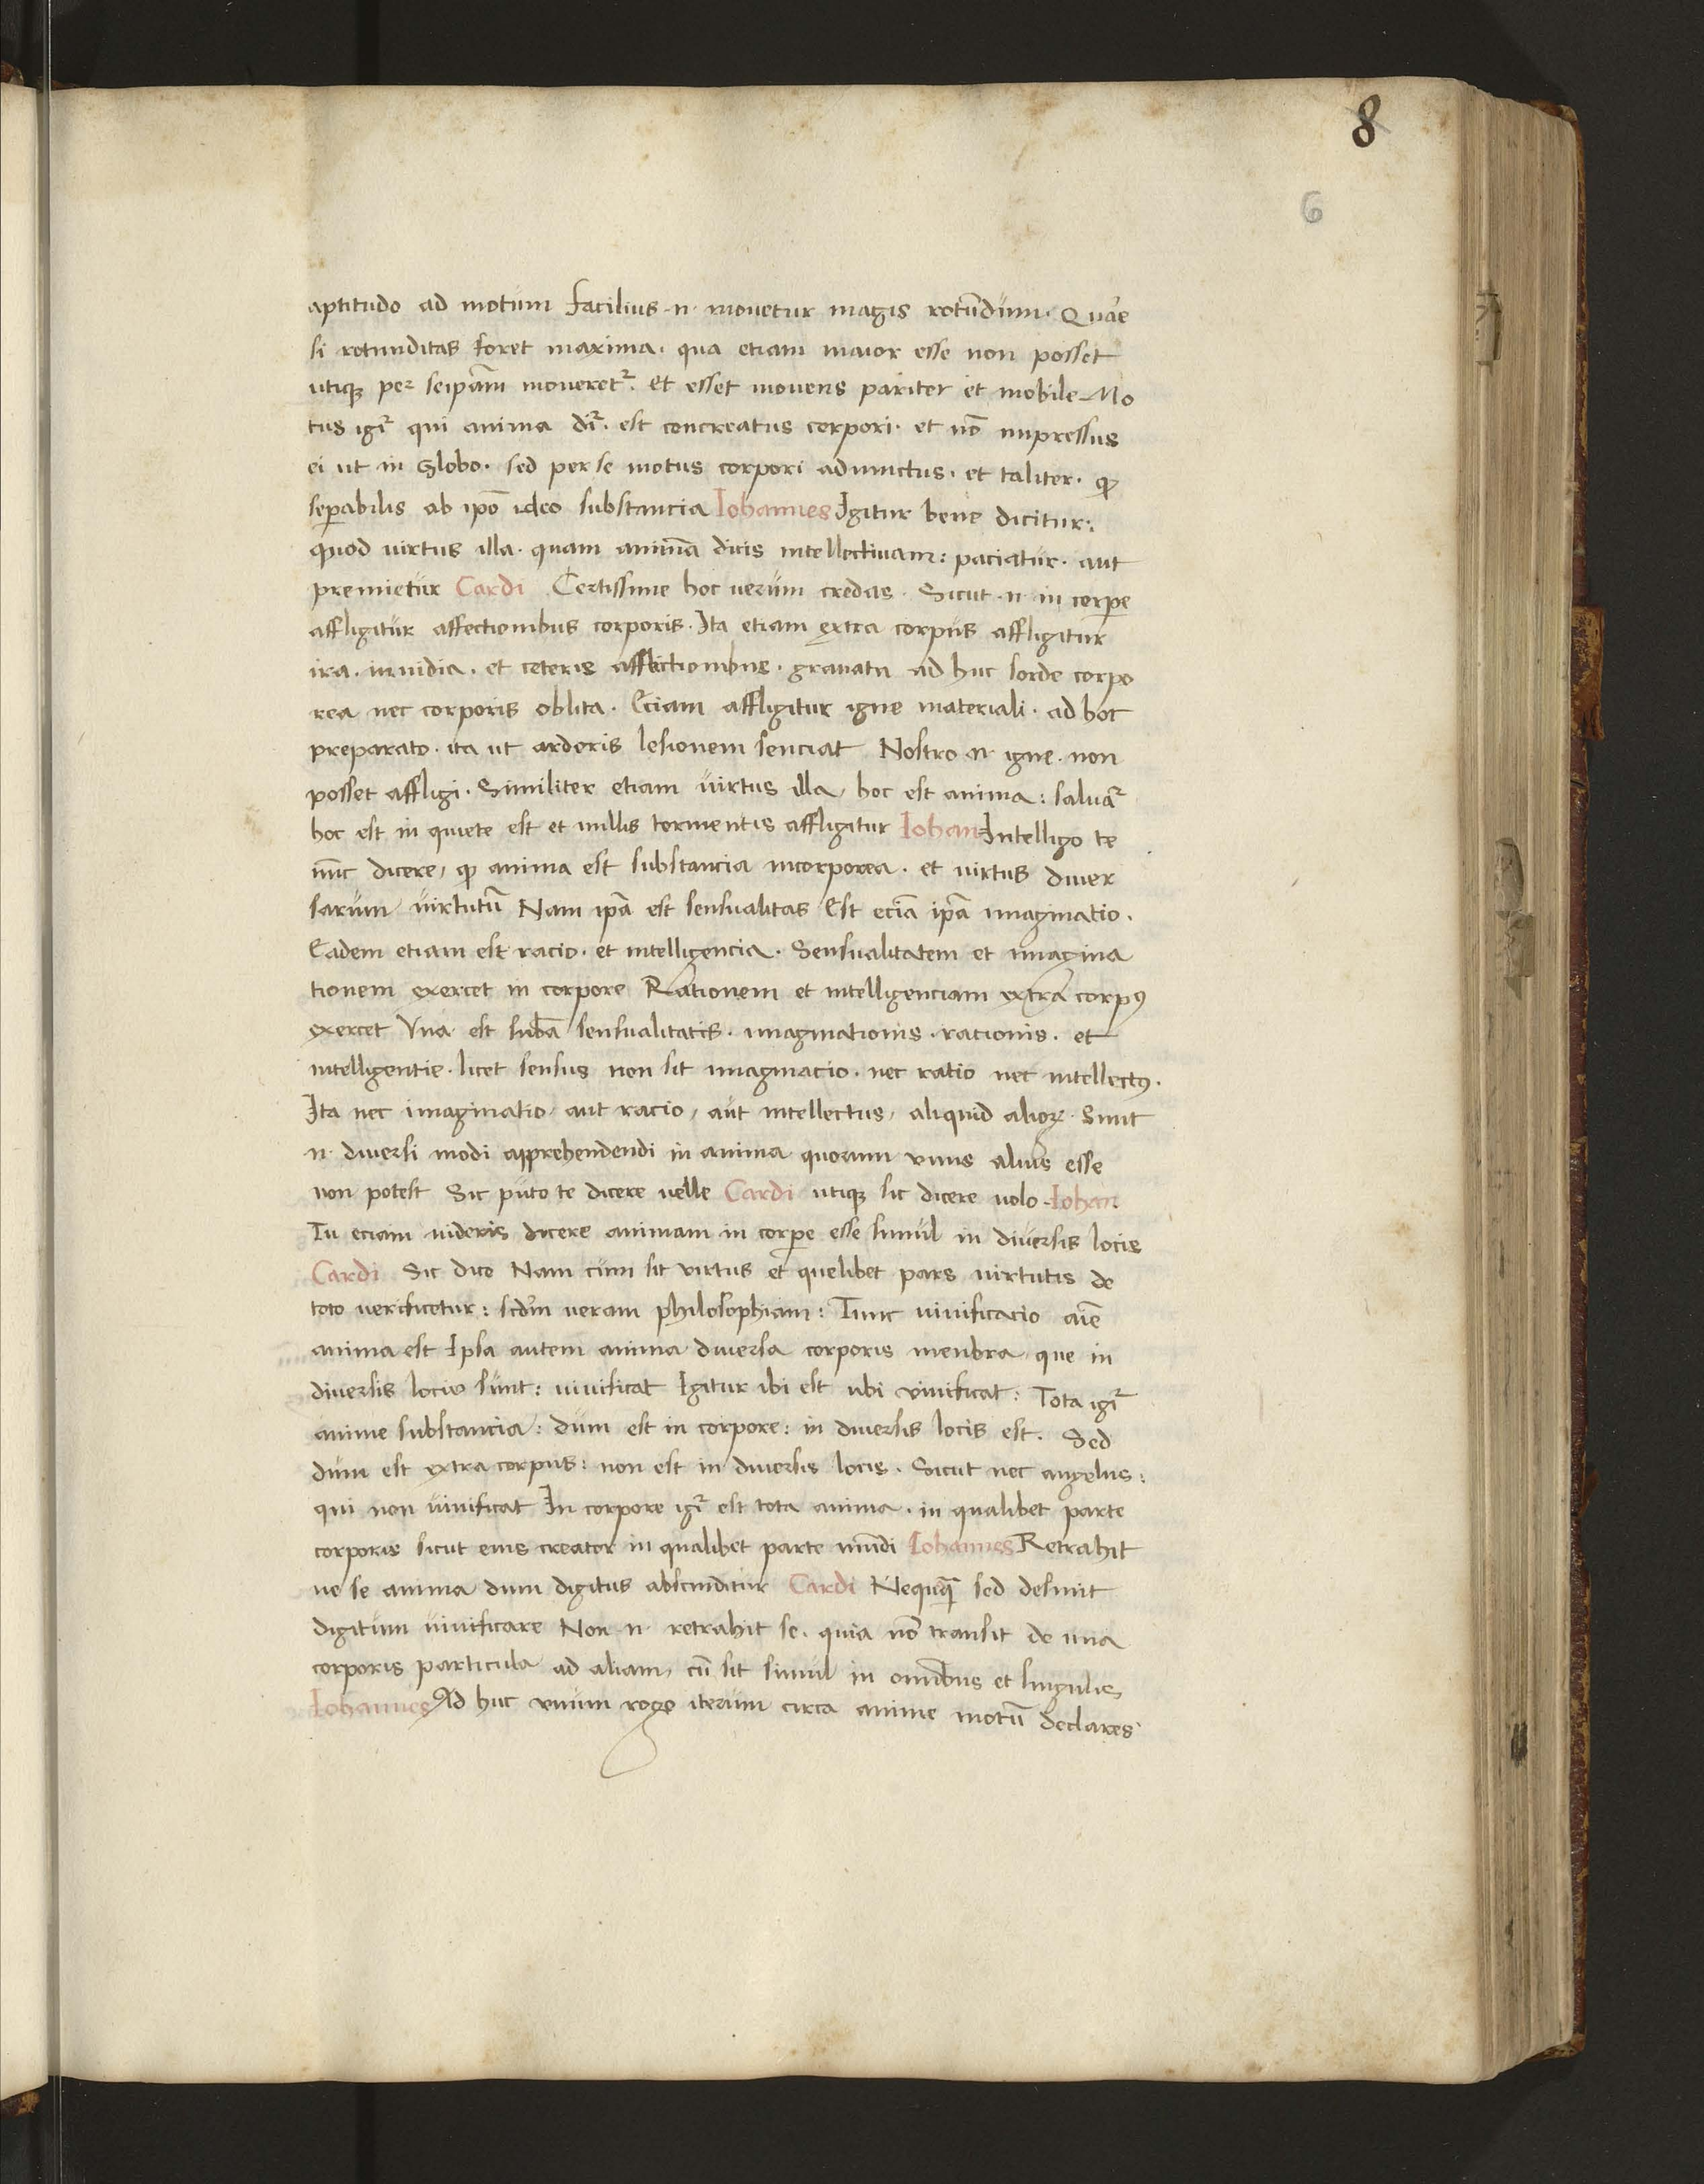 8
6
aptitudo ad motum facilius .n. mouetur magis rotundum. Quare
si rotunditas foret maxima. qua etiam maior esse non posset
utiqꝫ per seipãm moueretᷣ. et esset mouens pariter et mobile Mo
tus igiᷣ qui anima diᷣ. est concreatus corpori. et nõ impressus
ei ut in globo. sed per se motus corpori adiunctus. et taliter. ꝙ
seꝑabilis ab ipõ ideo substancia Iohannes Igitur bene dicitur:
quod uirtus illa. quam animã dicis intellectiuam: paciatur. aut
premietur Cardi Certissime hoc uerum credas. Sicut .n. in corꝑe
affligitur affectionibus corporis. Ita etiam extra corpus affligitur
ira. inuidia. et ceteris afflictionibus. grauata ad huc sorde corpo
rea nec corporis oblita. Eciam affligitur igne materiali. ad hoc
preparato. ita ut ardoris lesionem senciat Nostro .n. igne. non
posset affligi. Similiter etiam uirtus illa, hoc est anima: saluaᷣ
hoc est in quiete est et nullis tormentis affligitur Iohan Intelligo te
nũc dicere, ꝙ anima est substancia incorporea. et uirtus diuer
sarum uirtutũ Nam ipã est sensualitas Est eciã ipã imaginatio.
Eadem etiam est racio. et intelligencia. Sensualitatem et imagina
tionem exercet in corpore Rationem et intelligenciam extra corpꝰ
exercet Vna est subã sensualitatis. imaginationis. racionis. et
intelligentie. licet sensus non sit imaginacio. nec ratio nec intellectꝰ.
Ita nec imaginatio, aut racio, aut intellectus, aliquid alioꝝ. Sunt
.n. diuersi modi apprehendendi in anima quorum vnus alius esse
non potest Sic puto te dicere uelle Cardi utiqꝫ sic dicere uolo Iohan
Tu eciam uideris dicere animam in corꝑe esse simul in diuersis locis
Cardi Sic dico Nam cum sit virtus et quelibet pars uirtutis de
toto uerificetur: scd̃m ueram philosophiam: Tunc uiuificacio aĩe
anima est Ipsa autem anima diuersa corporis menbra, que in
diuersis locis sunt: uiuificat Igitur ibi est ubi viuificat: Tota igiᷣ
anime substancia: dum est in corpore: in diuersis locis est. Sed
dum est extra corpus: non est in diuersis locis. Sicut nec angelus:
qui non uiuificat In corpore igiᷣ est tota anima. in qualibet parte
corporis sicut eius creator in qualibet parte mũdi Iohannes Retrahit
ne se anima dum digitus abscinditur Cardi Nequaꝗ̃ sed desinit
digitum uiuificare Non .n. retrahit se. quia nõ transit de una
corporis particula ad aliam, cũ sit simul in omĩbus et singulis
Iohannes Ad huc vnum rogo iterum circa anime motũ declares